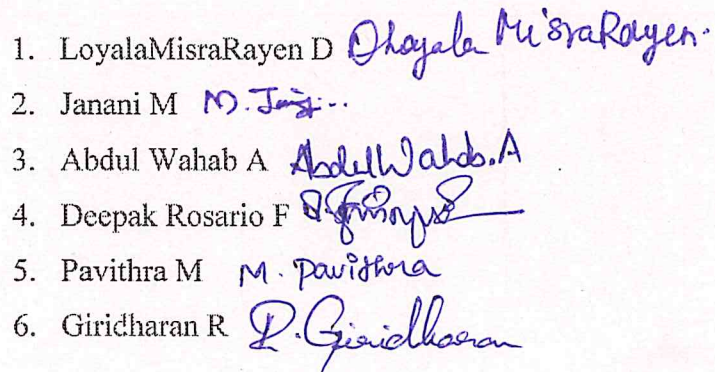 1. LoyalaMisraRayen D Dhoyala MisraRayen.
2. Janani M M. Janani
3. Abdul Wahab A Abdul Wahab.A
4. Deepak Rosario F
5. Pavithra M M. Pavithra
6. Giridharan R R. Giridharan